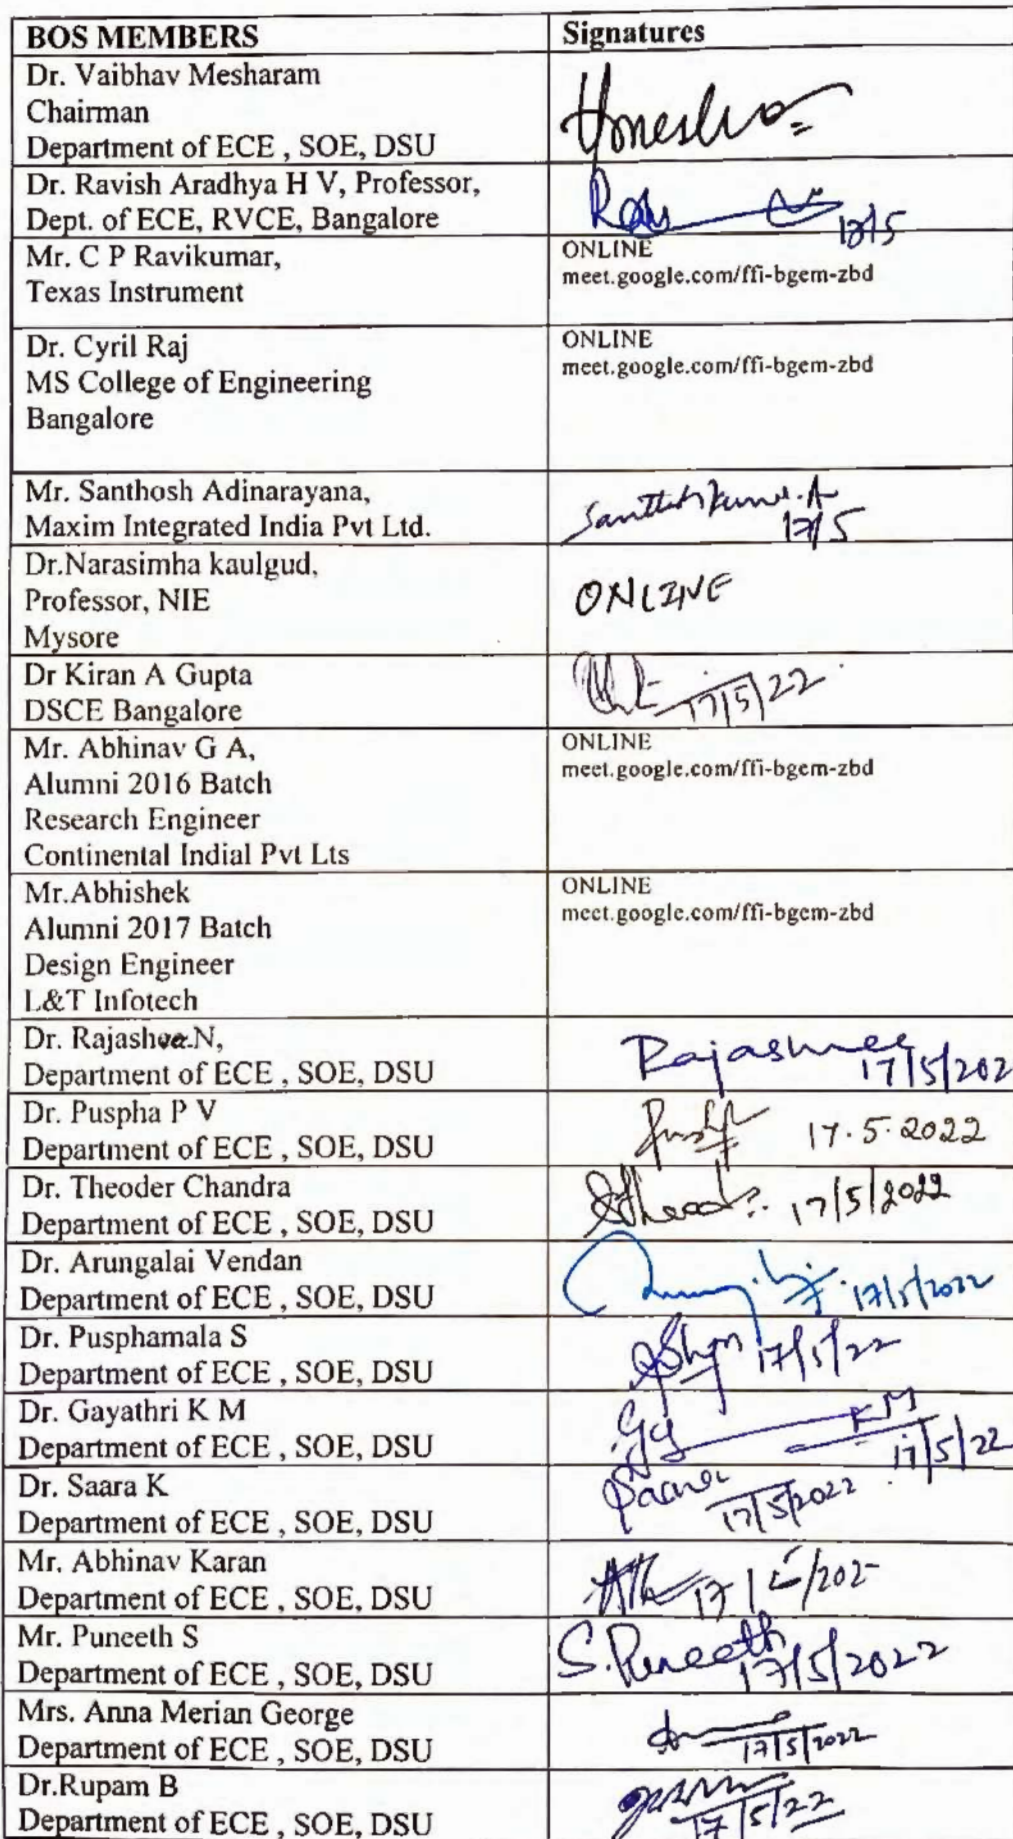 BOS MEMBERS Signatures
Dr. Vaibhav Mesharam
Chairman
Department of ECE , SOE, DSU
Dr. Ravish Aradhya H V, Professor,
Dept. of ECE, RVCE, Bangalore
17/5
Mr. C P Ravikumar,
Texas Instrument
ONLINE
meet.google.com/ffi-bgem-zbd
Dr. Cyril Raj
MS College of Engineering
Bangalore
ONLINE
meet.google.com/ffi-bgem-zbd
Mr. Santhosh Adinarayana,
Maxim Integrated India Pvt Ltd.
17/5
Dr.Narasimha kaulgud,
Professor, NIE
Mysore
ONLINE
Dr Kiran A Gupta
DSCE Bangalore
17/5/22
Mr. Abhinav G A,
Alumni 2016 Batch
Research Engineer
Continental Indial Pvt Lts
ONLINE
meet.google.com/ffi-bgem-zbd
Mr.Abhishek
Alumni 2017 Batch
Design Engineer
L&T Infotech
ONLINE
meet.google.com/ffi-bgem-zbd
Dr. Rajashree.N,
Department of ECE , SOE, DSU
Rajashree
17/5/202
Dr. Puspha P V
Department of ECE , SOE, DSU
17.5.2022
Dr. Theoder Chandra
Department of ECE , SOE, DSU
17/5/2022
Dr. Arungalai Vendan
Department of ECE , SOE, DSU
17/5/2022
Dr. Pusphamala S
Department of ECE , SOE, DSU
17/5/22
Dr. Gayathri K M
Department of ECE , SOE, DSU
KM
17/5/22
Dr. Saara K
Department of ECE , SOE, DSU
17/5/2022
Mr. Abhinav Karan
Department of ECE , SOE, DSU
17/5/202
Mr. Puneeth S
Department of ECE , SOE, DSU
S.Puneeth
17/5/2022
Mrs. Anna Merian George
Department of ECE , SOE, DSU
17/5/2022
Dr.Rupam B
Department of ECE , SOE, DSU
17/5/22